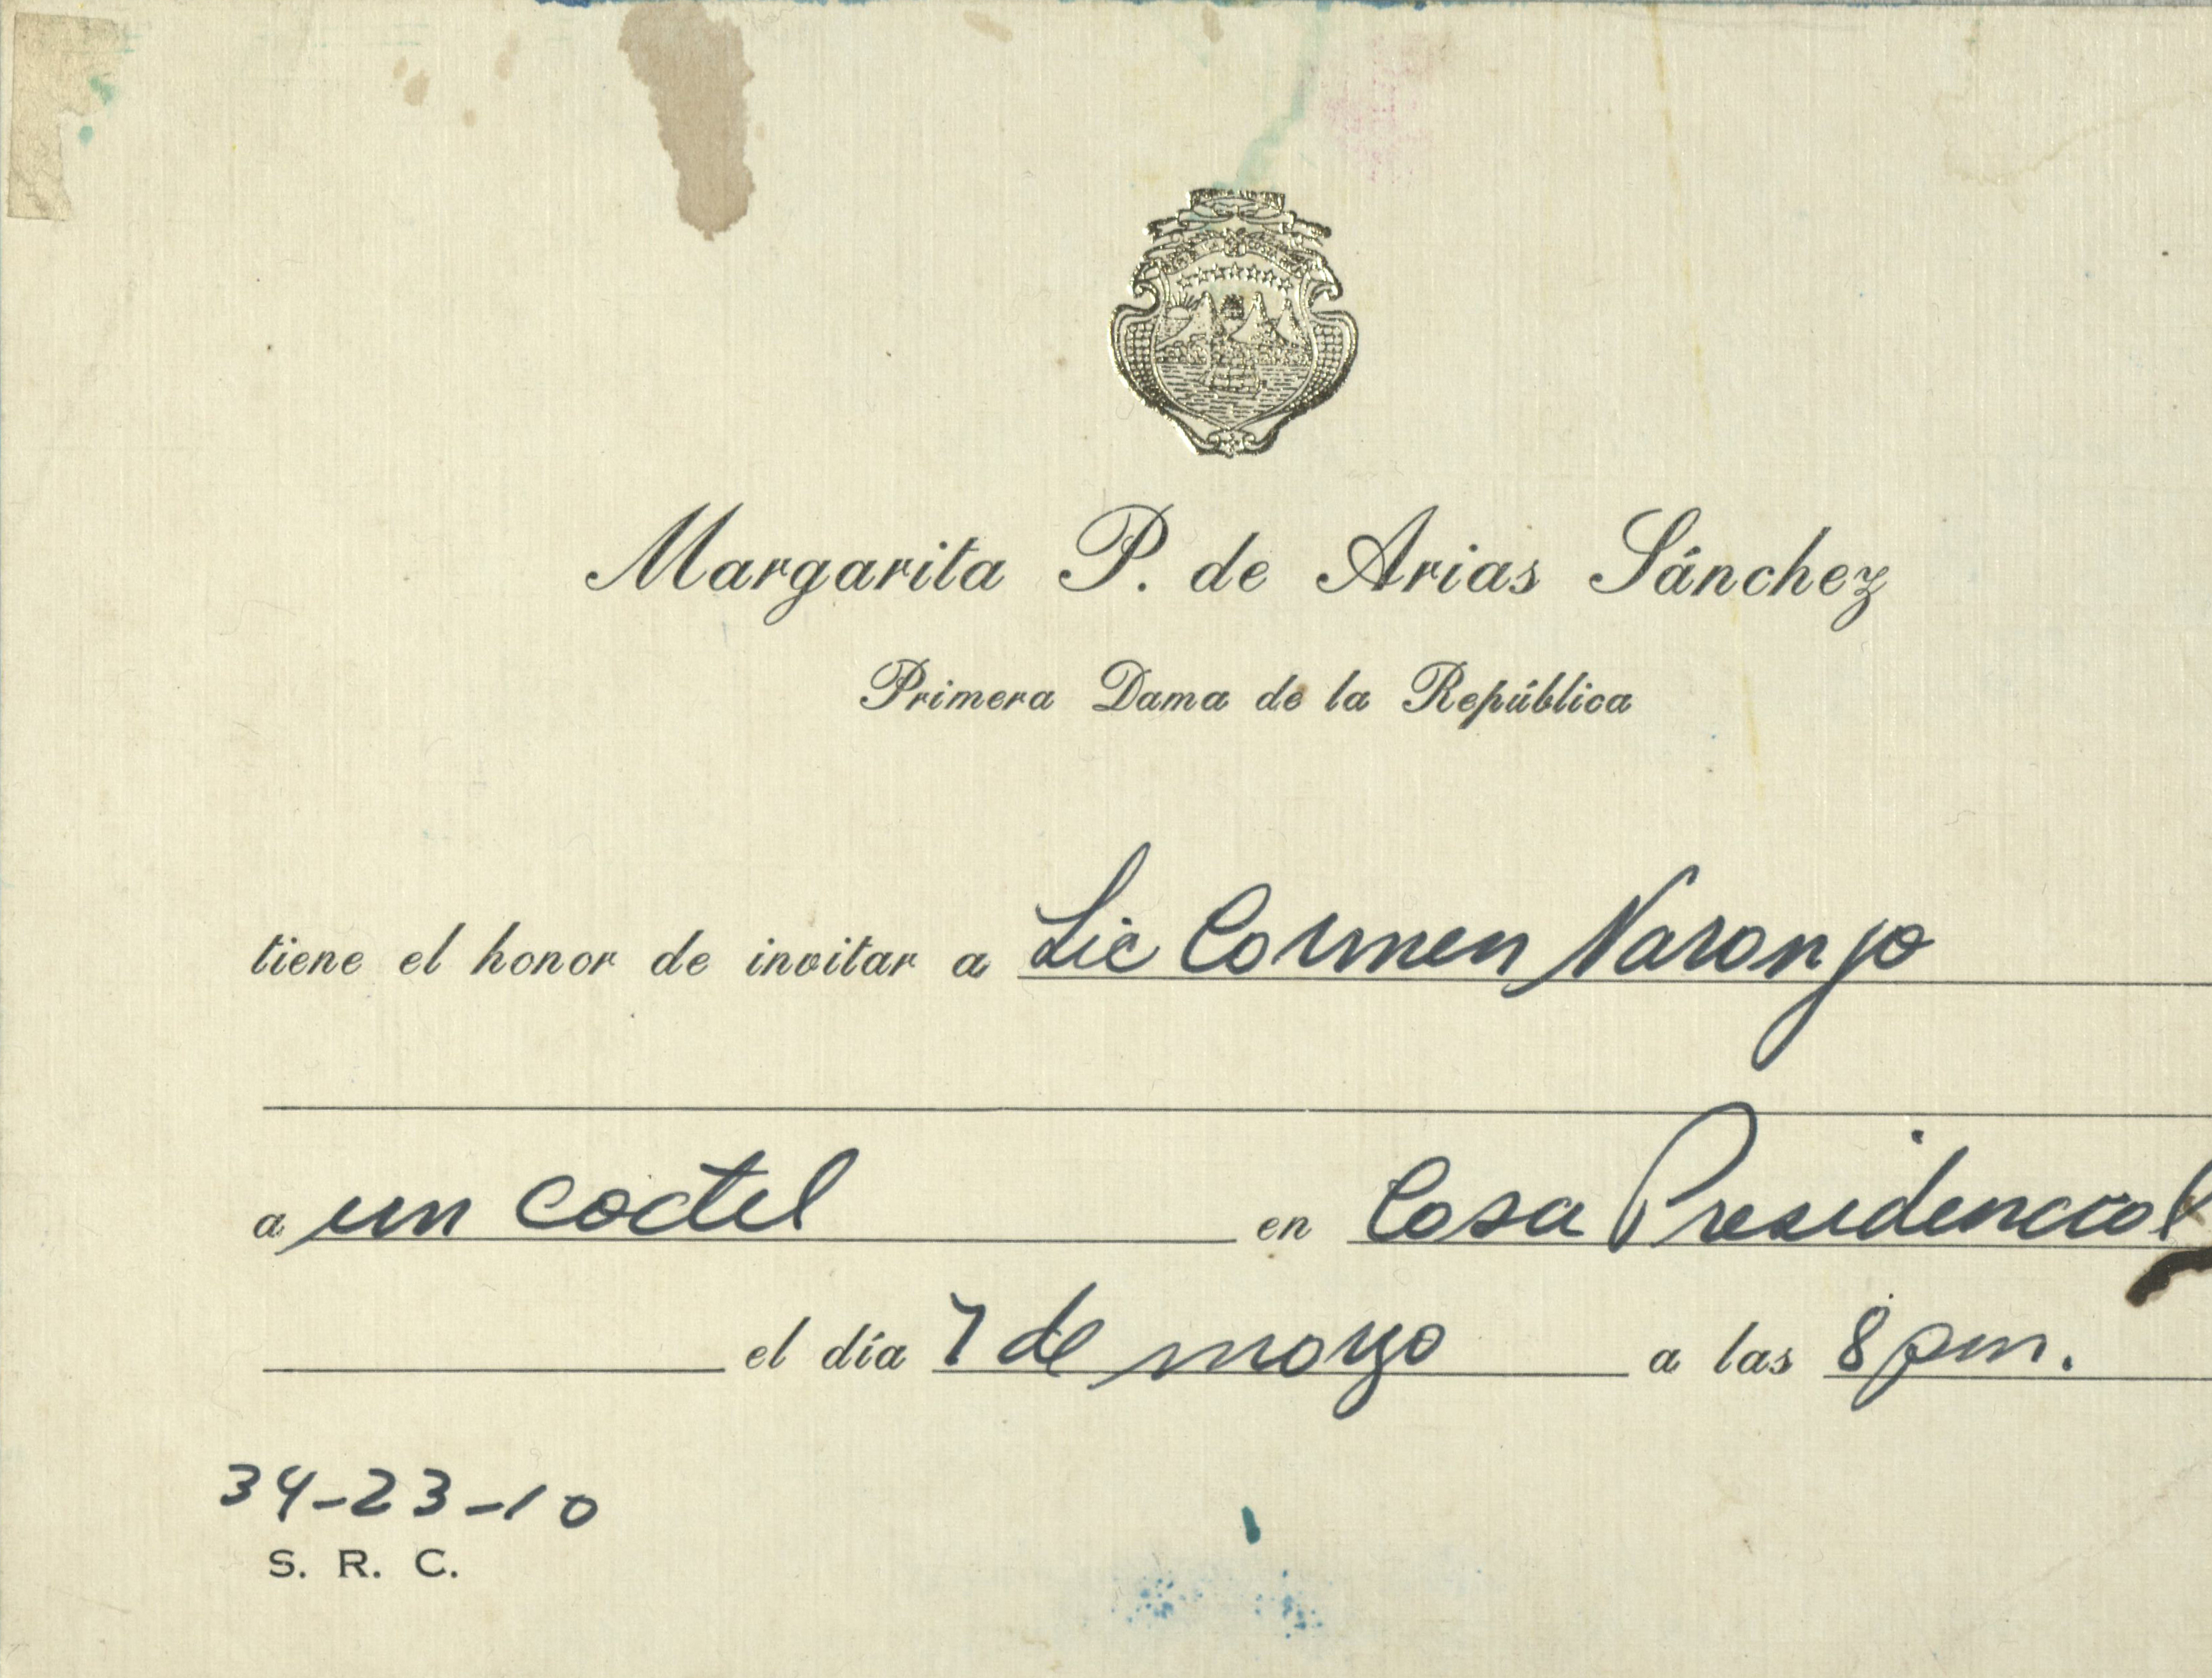 Margarita P. de Arias Sánchez
Primera Dama de la República
tiene el honor de invitar a Lic Carmen Naranjo
a un coctel en Casa Presidencial
el día 7 de marzo a las 8 pm.
34-23-10
S. R. C.